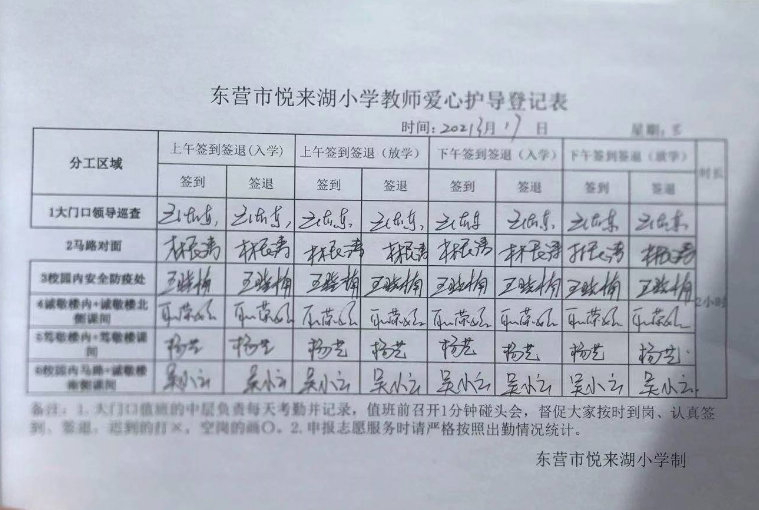 东营市悦来湖小学教师爱心护导登记表
时间：2021年3月17日 星期：三
分工区域 上午签到签退(入学) 上午签到签退（放学） 下午签到签退（入学） 下午签到签退（放学） 时长
签到 签退 签到 签退 签到 签退 签到 签退
1大门口领导巡查
2马路对面 林长涛 林长涛 林长涛 林长涛 林长涛 林长涛 林长涛 林长涛
3校园内安全防疫处 王晓楠 王晓楠 王晓楠 王晓楠 王晓楠 王晓楠 王晓楠 王晓楠
4诚敬楼内+诚敬楼北侧课间
5笃敬楼内+笃敬楼课间 杨芝 杨芝 杨芝 杨芝 杨芝 杨芝 杨芝 杨芝
6校园内马路+诚敬楼南侧课间 吴小云 吴小云 吴小云 吴小云 吴小云 吴小云 吴小云 吴小云
2小时
备注：1.大门口值班的中层负责每天考勤并记录，值班前召开1分钟碰头会，督促大家按时到岗、认真签
到、签退，迟到的打×，空岗的画〇。2.申报志愿服务时请严格按照出勤情况统计。
东营市悦来湖小学制